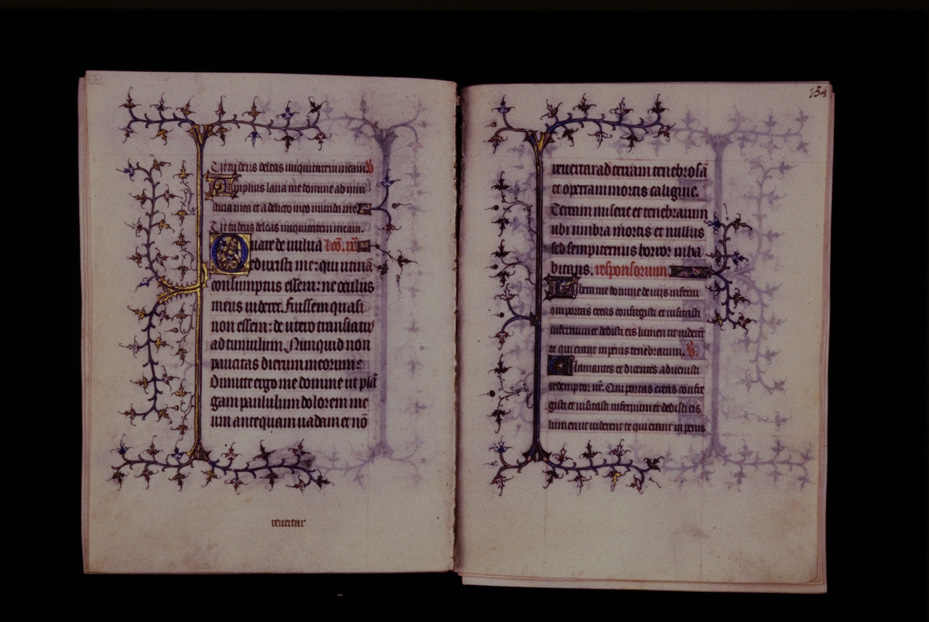 Tu tu deus deleas iniquitatem meam. ℟
Amplius laua me domine ab iniu
sticia mea et a delicto meo munda me
Tu tu deus deleas iniquitatem meam.
Quare de vulua
eduxisti me: qui utinā
consumptus essem: ne oculus
meus uideret. Fuissem quasi
non essem: de utero translatus
ad tumulum. Nunquid non
paucitas dierum meorum
Dimitte ergo me domine ut plā
gam paululum dolorem me
um antequam uadam et nō
reuertar
154
reuertar ad terram tenebrosā
et opertam mortis caligine.
Terram miserie et tenebrarum
ubi umbra mortis et nullus
sed sempiternus horror inha
bitans. responsorium
Libera me domine de uiis inferni
qui portas ereas confregisti et uisitasti
infernum et dedisti eis lumen ut uiderēt
te qui erant in penis tenebrarum. ℣.
Clamantes et dicentes aduenisti
redemptor nr̄. Qui portas ereas confre
gisti et uisitasti infernum et dedisti eis
lumen ut uiderent te qui erant in penis